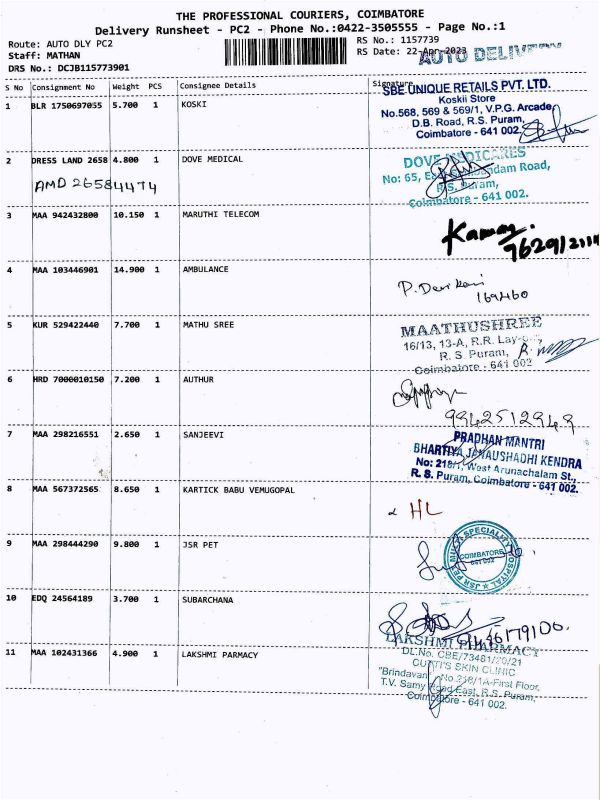 THE PROFESSIONAL COURIERS, COIMBATORE
Delivery Runsheet - PC2 - Phone No.:0422-3505555 - Page No.:1
Route: AUTO DLY PC2
RS No.: 1157739
Staff: MATHAN
RS Date: 22-Apr-2023
AUTO DELIVERY
DRS No.: DCJB115773901
S No Consignment No Weight PCS Consignee Details Signature
1 BLR 1750697055 5.700 1 KOSKI
SBE UNIQUE RETAILS PVT. LTD.
Koskii Store
No.568, 569 & 569/1, V.P.G. Arcade,
D.B. Road, R.S. Puram,
Coimbatore - 641 002.
2 DRESS LAND 2658 4.800 1 DOVE MEDICAL
AMD 26584474
DOVE MEDICARES
No: 65, Road,
R.S. Puram,
Coimbatore - 641 002.
3 MAA 942432800 10.150 1 MARUTHI TELECOM
4 MAA 103446901 14.900 1 AMBULANCE
169460
5 KUR 529422440 7.700 1 MATHU SREE
MAATHUSHREE
16/13, 13-A, R.R. Lay-
R. S. Puram,
Coimbatore - 641 002
6 HRD 7000010150 7.200 1 AUTHUR
9942512949
7 MAA 298216551 2.650 1 SANJEEVI
PRADHAN MANTRI
BHARTIYA JANAUSHADHI KENDRA
No: 218/1, West Arunachalam St.,
R. S. Puram, Coimbatore - 641 002.
8 MAA 567372565 8.650 1 KARTICK BABU VEMUGOPAL
HL
9 MAA 298444290 9.800 1 JSR PET
JSR PET MULTI SPECIALITY HOSPITAL
COIMBATORE
641 002
10 EDQ 24564189 3.700 1 SUBARCHANA
11 MAA 102431366 4.900 1 LAKSHMI PARMACY
LAKSHMI PHARMACY
DL.No. CBE/73481/20/21
CUTTI'S SKIN CLINIC
"Brindavan" No.218/1A-First Floor,
T.V. Samy Road East, R.S. Puram,
Coimbatore - 641 002.